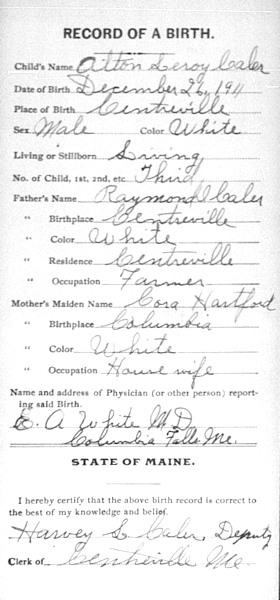 RECORD OF A BIRTH.
Child's Name Alton Leroy Caler
Date of Birth December 26, 1911
Place of Birth Centreville
Sex Male Color White
Living or Stillborn Living
No. of Child, 1st, 2nd, etc. Third
Father's Name Raymond Caler
" Birthplace Centreville
" Color White
" Residence Centreville
" Occupation Farmer
Mother's Maiden Name Cora Hartford
" Birthplace Columbia
" Color White
" Occupation House wife
Name and address of Physician (or other person) report-
ing said Birth.
E. A White M.D.
Columbia Falls Me.
STATE OF MAINE.
I hereby certify that the above birth record is correct to
the best of my knowledge and belief.
Harvey S. Caler, Deputy
Clerk of Centreville Me.